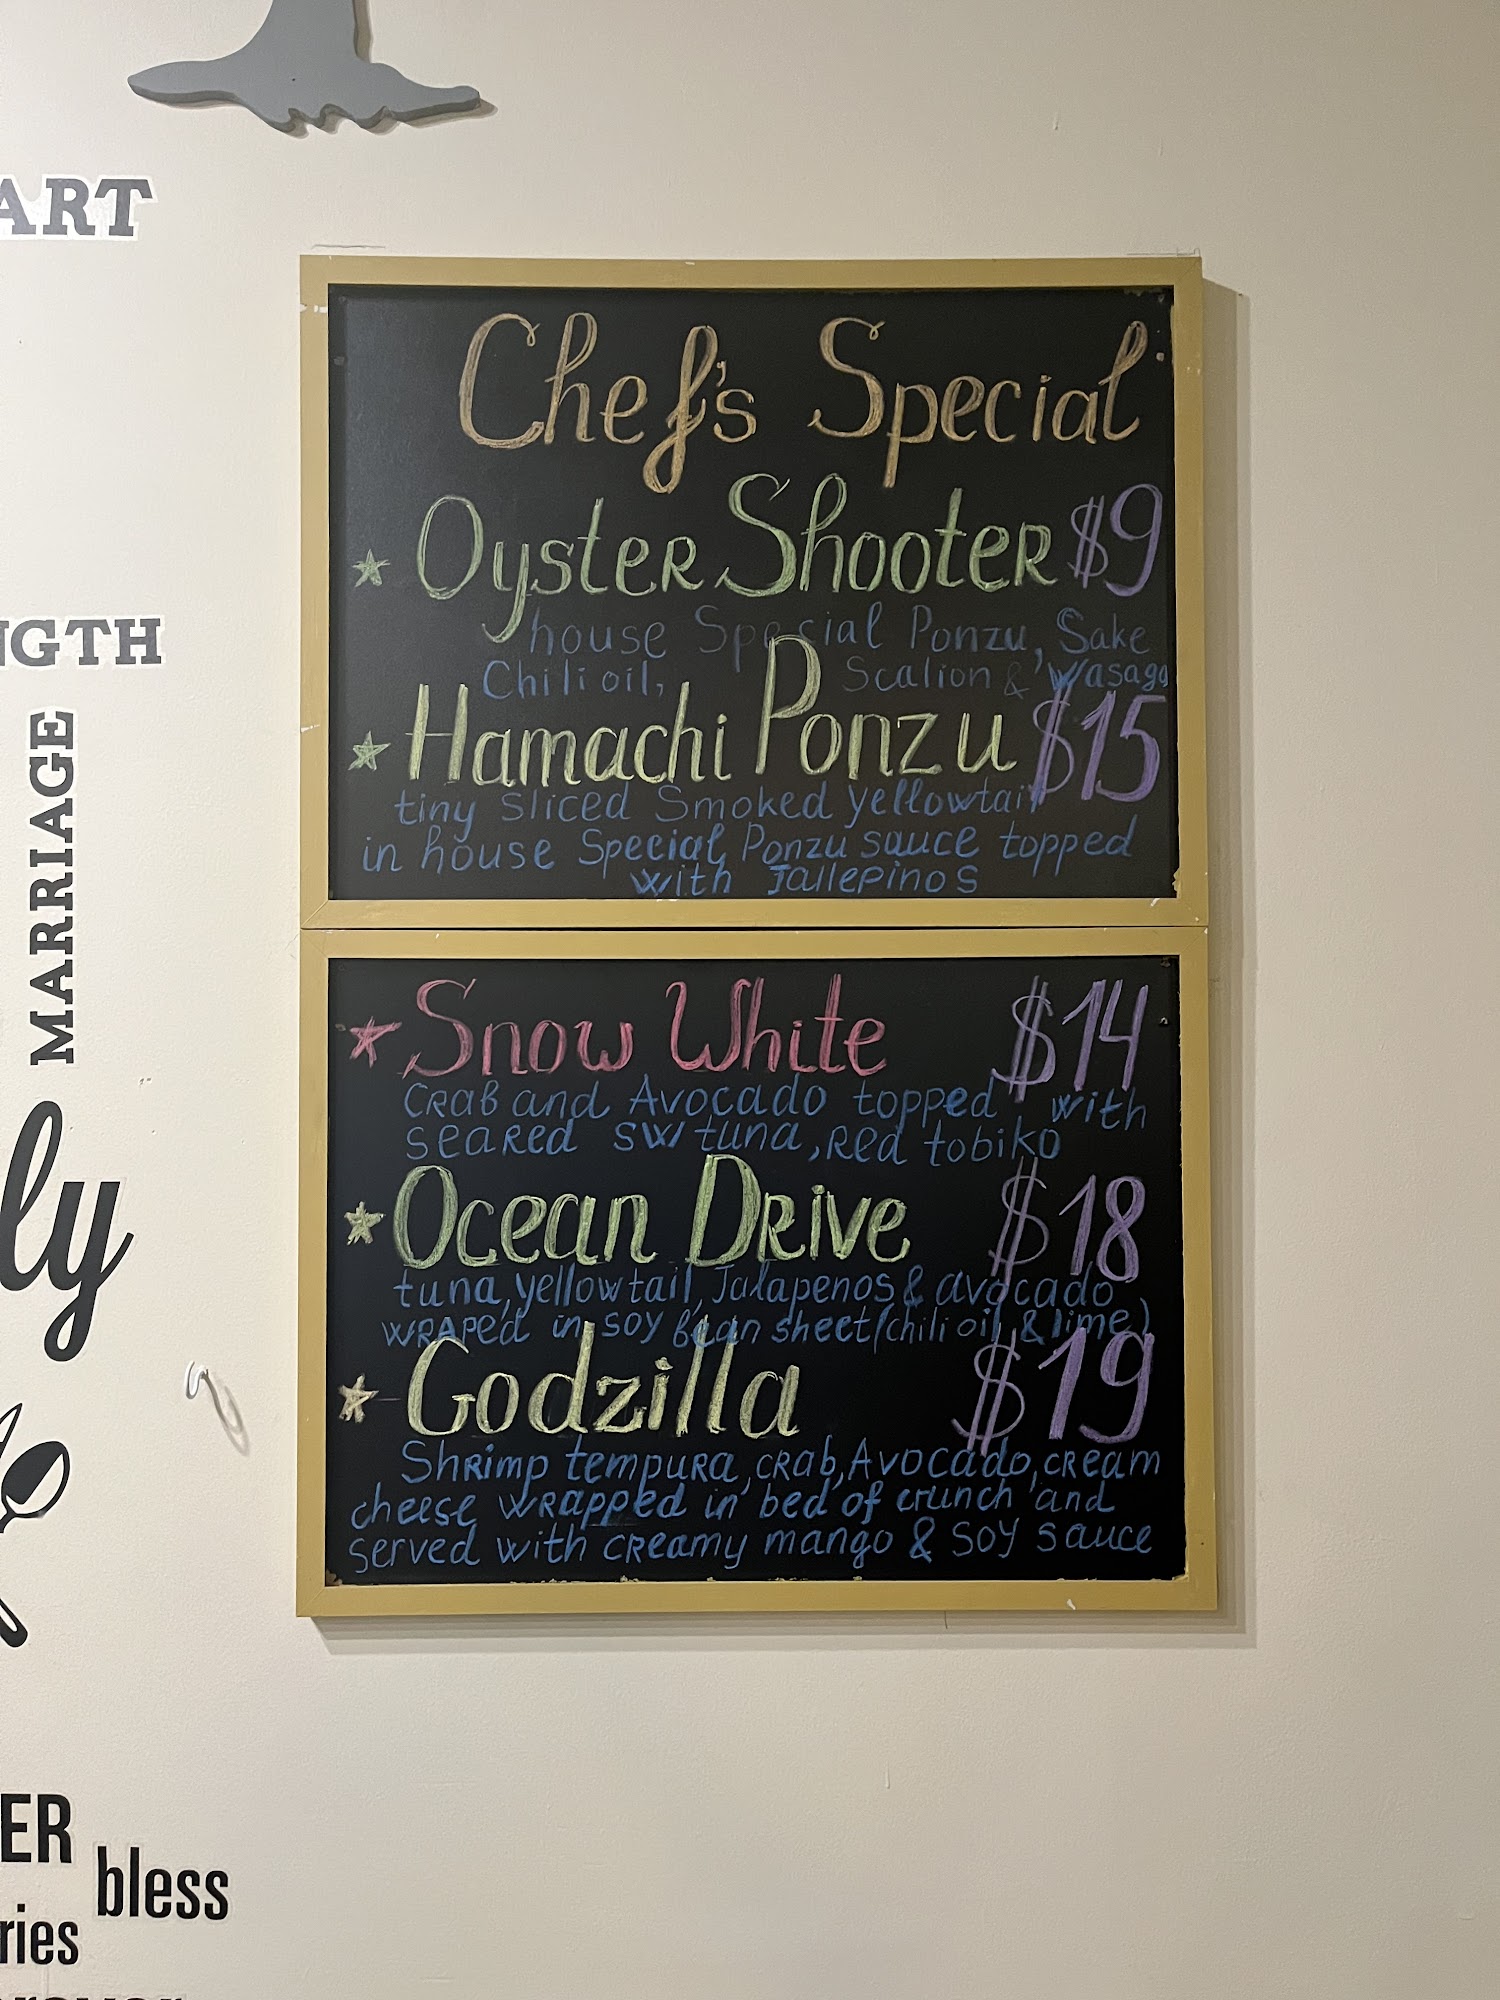 ART
NGTH
MARRIAGE
ly
ER
bless
ries
Chef's Special
Oyster Shooter $9
house Special Ponzu, Sake
Chili oil, Scalion & Wasago
Hamachi Ponzu $15
tiny sliced Smoked yellowtail
in house Special Ponzu sauce topped
with Jallepinos
Snow White $14
Crab and Avocado topped with
seared SW tuna, Red tobiko
Ocean Drive $18
tuna, yellowtail, Jalapenos & avocado
wraped in soy bean sheet (chili oil & lime)
Godzilla $19
Shrimp tempura, crab, Avocado, cream
cheese wrapped in bed of crunch and
served with creamy mango & soy sauce